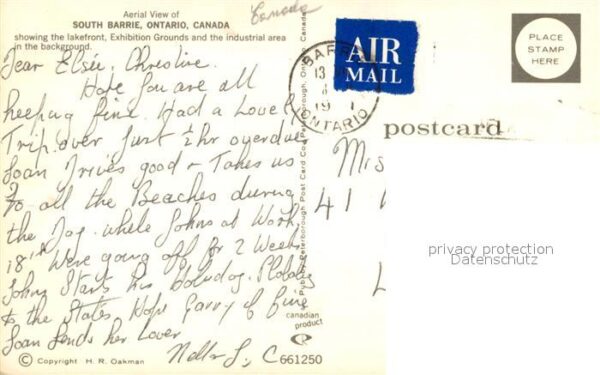 Aerial View of
SOUTH BARRIE, ONTARIO, CANADA
showing the lakefront, Exhibition Grounds and the industrial area
in the background.
Canada
Dear Elsie, Christine.
Hope You are all
keeping fine. Had a Lovely
Trip over Just ½hr overdue
Joan Drives good + Takes us
To all the Beaches during
the Day. while Johns at Work.
18th Were going off for 2 Weeks
Johns Starts his holiday. Probably
to the States Hope Garry
fine
Joan Sends her Love
© Copyright H. R. Oakman
canadian
product
C 661250
BARRIE
13
19
ONTARIO
AIR
MAIL
PLACE
STAMP
HERE
postcard
41
privacy protection
Datenschutz